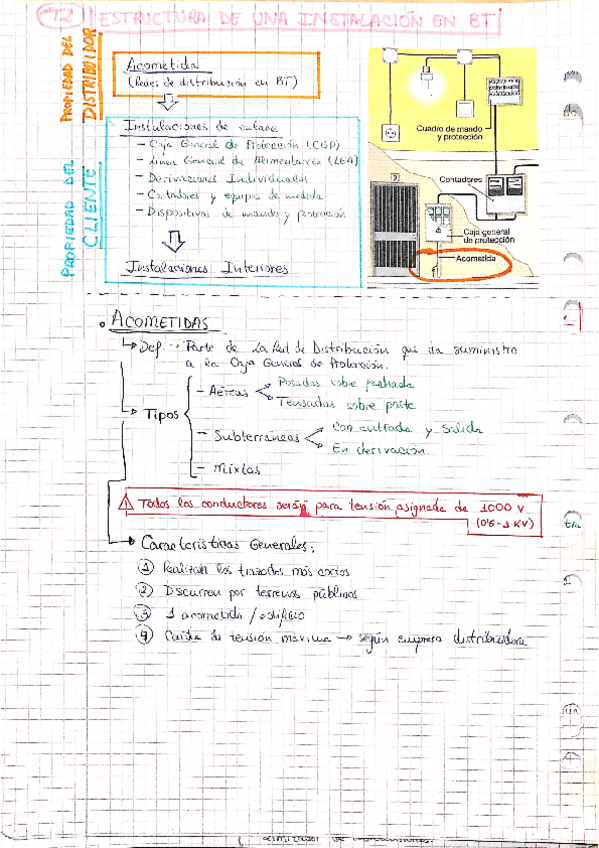 T.2 ESTRUCTURA DE UNA INSTALACIÓN EN BT
PROPIEDAD DEL
DISTRIBUIDOR
Acometida
(Redes de distribución en BT)
PROPIEDAD DEL
CLIENTE
Instalaciones de enlace
- Caja General de Protección (CGP)
- Línea General de Alimentación (LGA)
- Derivaciones Individuales
- Contadores y equipos de medida
- Dispositivos de mando y protección
Instalaciones Interiores
Cuadro de mando
y protección
Contadores
Caja general
de protección
Acometida
ACOMETIDAS
Def. → Parte de la Red de Distribución que da suministro
a la Caja General de Protección.
Tipos
- Aéreas
Posadas sobre fachada
Tensadas sobre poste
- Subterráneas
Con entrada y salida
En derivación
- Mixtas
Todos los conductores serán para tensión asignada de 1000 V
(0'6-1 KV)
Características Generales:
1 Realizan los trazados más cortos
2 Discurren por terrenos públicos
3 1 acometida / edificio
4 Caída de tensión máxima → según empresa distribuidora